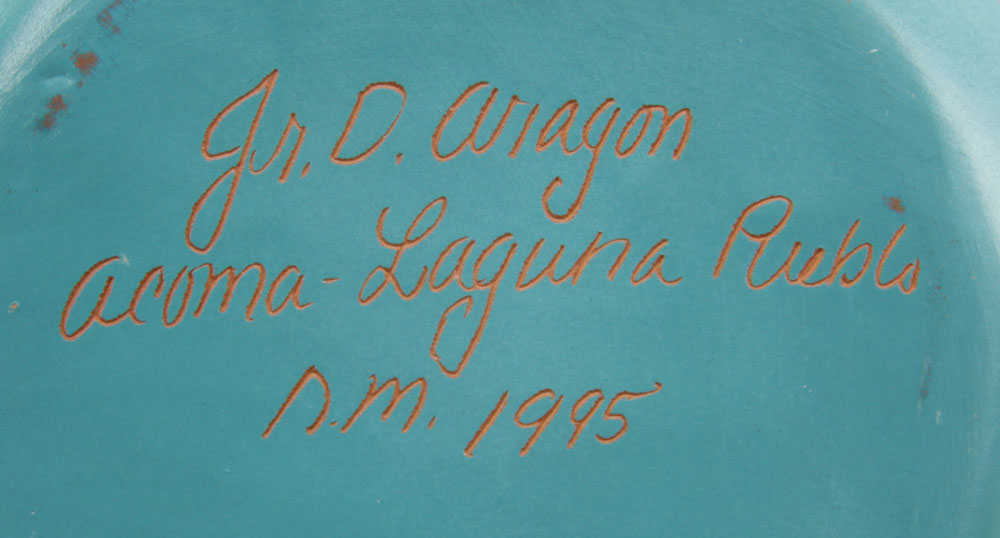 Jr. D. Aragon
Acoma-Laguna Pueblo
N.M. 1995